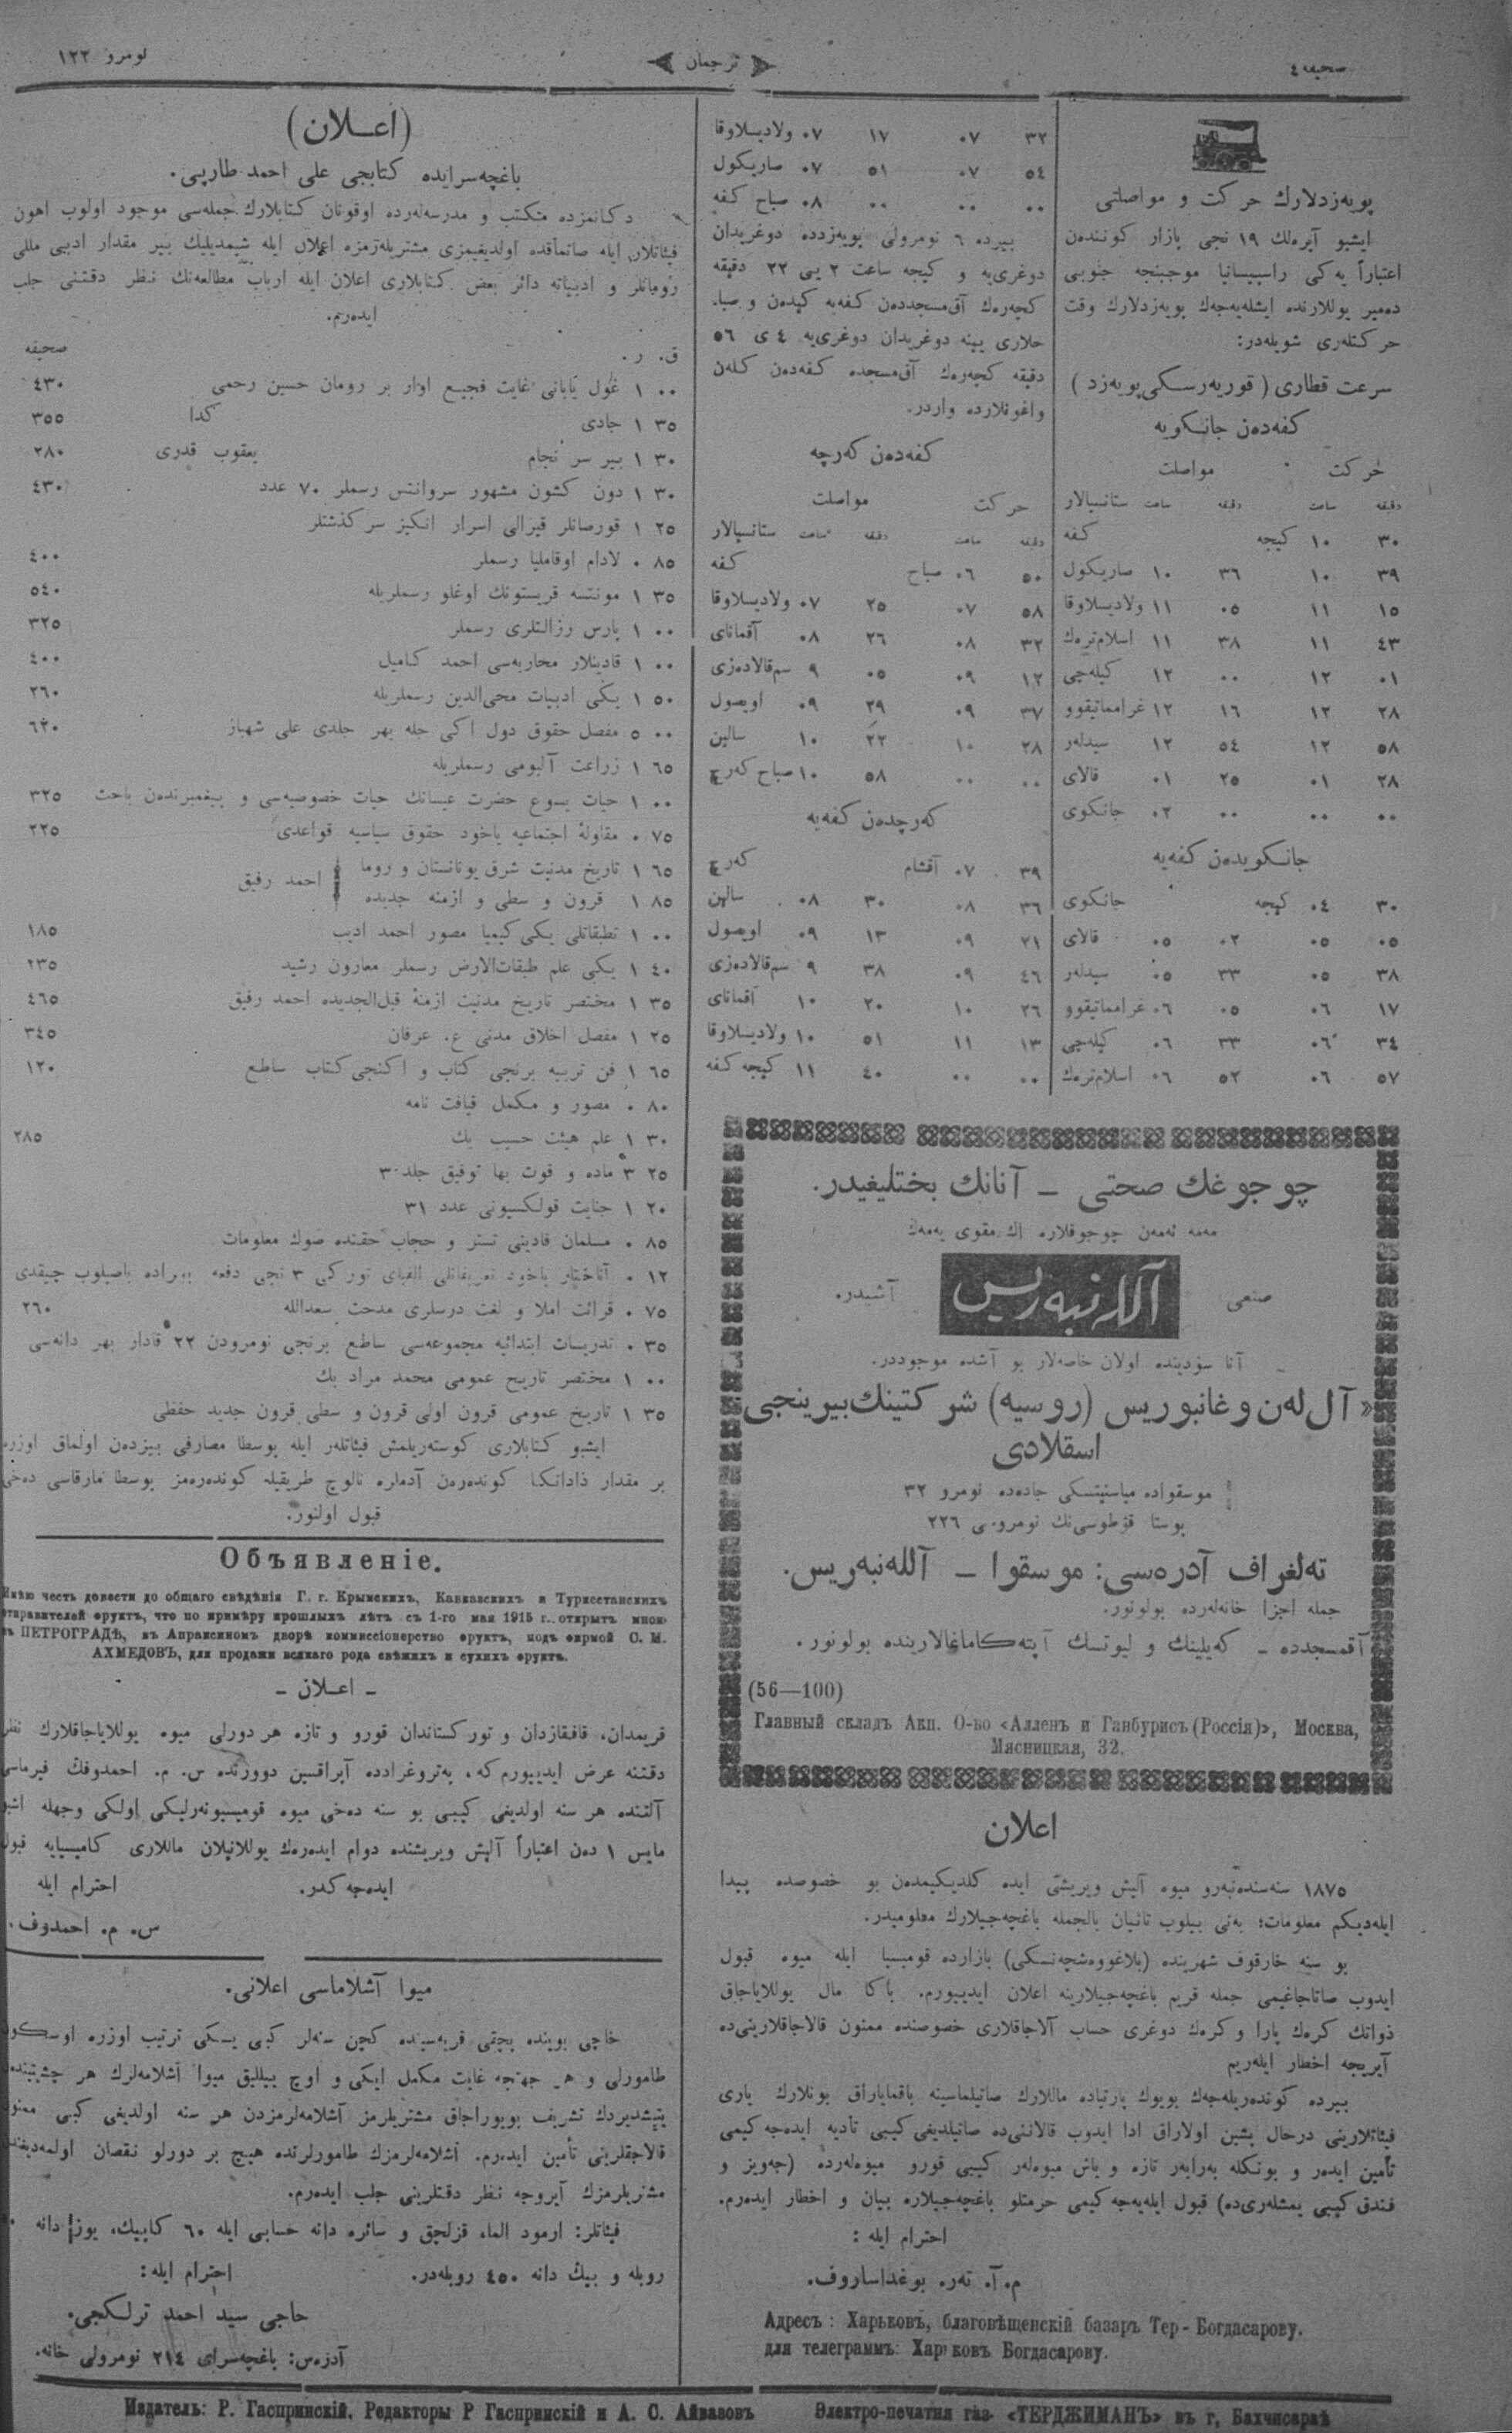 صحیفه ٤
ترجمان
نومرو ١٢٢
پویەزدلارك حركت و مواصلتی
ایشبو آیرەلك ١٩ نجی بازار كونندەن
اعتباراً یەكی راسپیسانیا موجبنجە جنوبی
دەمیر یوللارندە ایشلەیەجەك پویەزدلارك وقت
حركتلەری شویلەدر:
سرعت قطاری (قوریەرسكی پویەزد)
كفەدەن جانكویە
حركت مواصلت
دقیقە ساعت دقیقە ساعت ستانسیالار
٣٠ ١٠ كیجە كفە
٣٩ ١٠ ٣٦ ١٠ صاریكول
١٥ ١١ ٠٥ ١١ ولادیسلاوقا
٤٣ ١١ ٣٨ ١١ اسلام‌ترەك
٠١ ١٢ ٠٠ ١٢ كیلەجی
٢٨ ١٢ ١٦ ١٢ غراماتیقوو
٥٨ ١٢ ٥٤ ١٢ سیدلەر
٢٨ ٠١ ٢٥ ٠١ قالای
٠٠ ٠٠ ٠٠ ٠٢ جانكوی
جانكویدەن كفەیە
٣٠ ٠٤ كیجە جانكوی
٠٥ ٠٥ ٠٢ ٠٥ قالای
٣٨ ٠٥ ٣٣ ٠٥ سیدلەر
١٧ ٠٦ ٠٥ ٠٦ غراماتیقوو
٣٤ ٠٦ ٣٣ ٠٦ كیلەجی
٥٧ ٠٦ ٥٢ ٠٦ اسلام‌ترەك
٣٢ ٠٧ ١٧ ٠٧ ولادیسلاوقا
٥٤ ٠٧ ٥١ ٠٧ صاریكول
٠٠ ٠٠ ٠٠ ٠٨ صباح كفە
بیردە ٦ نومرولی پویەزددە دوغریدان
دوغری‌یە و كیجە ساعت ٢ یی ٢٢ دقیقە
كچەرەك آق‌مسجددەن كفەیە كیدەن و صبا‌
حلاری یینە دوغریدان دوغری‌یە ٤ ی ٥٦
دقیقە كچەرەك آق‌مسجدە كفەدەن كلەن
واغونلاردە واردر.
كفەدەن كەرچە
حركت مواصلت
دقیقە ساعت دقیقە ساعت ستانسیالار
٥٠ ٠٦ صباح كفە
٥٨ ٠٧ ٢٥ ٠٧ ولادیسلاوقا
٣٢ ٠٨ ٢٦ ٠٨ آقمانای
١٢ ٠٩ ٠٥ ٩ سم‌قالادەزی
٣٧ ٠٩ ٢٩ ٠٩ اویصول
٢٨ ١٠ ٢٢ ١٠ سالین
٠٠ ٠٠ ٥٨ ١٠ صباح كەرچ
كەرچدەن كفەیە
٣٩ ٠٧ آقشام كەرچ
٣٦ ٠٨ ٣٠ ٠٨ سالین
٢١ ٠٩ ١٣ ٠٩ اویصول
٤٦ ٠٩ ٣٨ ٩ سم‌قالادەزی
٢٦ ١٠ ٢٠ ١٠ آقمانای
١٣ ١١ ٥١ ١٠ ولادیسلاوقا
٠٠ ٠٠ ٤٠ ١١ كیجە كفە
چوجوغك صحتی – آنانك بختلیغیدر.
مەمە ئەمەن چوجوقلارە اك مقوی یەمەك
صنعی آللەنبەریس آشیدر.
آنا سودیندە اولان خاصەلار بو آشدە موجوددر.
«آل‌لەن و غانبوریس (روسیە) شركتینك بیرینجی
اسقلادی
موسقوادە میاسنیتسكی جادەدە نومرو ٣٢
پوستا قوطوسی‌نك نومروسی ٢٢٦
تەلغراف آدرەسی: موسقوا – آللەنبەریس.
جملە اجزا خانەلەردە بولونور.
آقمسجددە – كەیلینك و لیوتسك آپتەكامانغالاریندە بولونور.
(56—100)
Главный складъ Акц. О-во «Алленъ и Ганбурисъ (Россія)», Москва,
Мясницкая, 32.
اعلان
١٨٧٥ سنەسندەنبەرو میوە آلیش ویریشی ایدە كلدیكیمدن بو خصوصدە پیدا
ایلەدیكم معلومات؛ بەنی بیلوب تانیان بالجملە باغچەجیلارك معلومیدر.
بو سنە خارقوف شهریندە (بلاغووەشچەنسكی) بازاردە قومیسیا ایلە میوە قبول
ایدوب صاتاجاغیمی جملە قریم باغچەجیلارینە اعلان ایدییورم. باكا مال یوللایاجاق
ذواتك كرەك پارا وكرەك دوغری حساب آلاجاقلاری خصوصندە ممنون قالاجاقلارینی‌دە
آیریجە اخطار ایلەریم
بیردە كوندەریلەجەك بویوك پارتیادە ماللارك صاتیلماسینە باقمایاراق بونلارك یاری
فیئاتلارینی درحال پشین اولاراق ادا ایدوب قالانی‌دە صاتیلدیغی كیبی تأدیە ایدەجەكیمی
تأمین ایدەر و بونكلە بەرابەر تازە و یاش میوەلەر كیبی قورو میوەلەردە (جەویز و
فندق كیبی یمشلەری‌دە) قبول ایلەیەجەكیمی حرمتلو باغچەجیلارە بیان و اخطار ایدەرم.
احترام ایلە:
م. آ. تەر. بوغداساروف.
Адресъ: Харьковъ, благовѣщенскій базаръ Тер-Богдасарову.
для телеграммъ: Харьковъ Богдасарову.
(اعلان)
باغچەسرایدە كتابجی علی احمد طارپی.
دكانمزدە مكتب و مدرسەلەردە اوقونان كتابلارك جملەسی موجود اولوب اهون
فیئاتلار ایلە صاتماقدە اولدیغیمزی مشتریلەرمزە اعلان ایلە شیمدیلیك بیر مقدار ادبی مللی
رومانلر و ادبیاتە دائر بعض كتابلاری اعلان ایلە ارباب مطالعەنك نظر دقتنی جلب
ایدەریم.
ق. ر. صحیفە
٠٠ ١ غول یابانی غایت فجیع اوار بر رومان حسین رحمی ٤٣٠
٣٥ ١ جادی كذا ٣٥٥
٣٠ ١ بیر سر نجام یعقوب قدری ٢٨٠
٣٠ ١ دون كشون مشهور سروانتس رسملر ٧٠ عدد ٤٣٠
٢٥ ١ قورصانلر قیرالی اسرار انكیز سركذشتلر
٨٥ ٠ لادام اوقاملیا رسملر ٤٠٠
٣٥ ١ مونتسە قریستونك اوغلو رسملریلە ٥٤٠
٠٠ ١ پارس رزالتلری رسملر ٣٢٥
٠٠ ١ قادینلار محاربەسی احمد كامیل ٤٠٠
٥٠ ١ یكی ادبیات محی‌الدین رسملریلە ٢٦٠
٠٠ ٥ مفصل حقوق دول اكی جلە بهر جلدی علی شهباز ٦٢٠
٦٥ ١ زراعت آلبومی رسملریلە
٠٠ ١ حیات یسوع حضرت عیسانك حیات خصوصیەسی و پیغمبرندەن باحث ٣٢٥
٧٥ ٠ مقاولۀ اجتماعیە یاخود حقوق سیاسیە قواعدی ٢٢٥
٦٥ ١ تاریخ مدنیت شرق یونانستان و روما
٨٥ ١ قرون و سطی و ازمنە جدیدە احمد رفیق
٠٠ ١ تطبقاتلی یكی كیمیا مصور احمد ادیب ١٨٥
٤٠ ١ یكی علم طبقات‌الارض رسملر معارون رشید ٢٣٥
٣٥ ١ مختصر تاریخ مدنیت ازمنۀ قبل‌الجدیدە احمد رفیق ٤٦٥
٢٥ ١ مفصل اخلاق مدنی ع. عرفان ٣٤٥
٦٥ ١ فن تربیە برنجی كتاب و اكنجی كتاب ساطع ١٢٠
٨٠ ٠ مصور و مكمل قیافت نامە
٣٠ ١ علم هیئت حسیب بك ٢٨٥
٢٥ ٣ مادە و قوت بها توفیق جلد ٣
٢٠ ١ جنایت قولكسیونی عدد ٣١
٨٥ ٠ مسلمان قادینی تستر و حجاب حقندە صوك معلومات
١٢ ٠ آناختار یاخود الفبای توركی ٣ نجی دفعە باصیلوب چیقدی
٧٥ ٠ قرائت املا و لغت درسلری مدحت سعدالله ٢٦٠
٣٥ ٠ تدریسات ابتدائیە مجموعەسی ساطع برنجی نومرودن ٢٢ قادار بهر دانەسی
٠٠ ١ مختصر تاریخ عمومی محمد مراد بك
٣٥ ١ تاریخ عمومی قرون اولی قرون و سطی قرون جدید حفظی
ایشبو كتابلاری كوستەریلمش فیئاتلەر ایلە پوستا مصارفی بیزدەن اولماق اوزرە
بر مقدار ذاداتكا كوندەرەن آدملرە نالوج طریقیلە كوندەرەمز پوستا مارقاسی دەخی
قبول اولنور.
Объявленіе.
Имѣю честь довести до общаго свѣдѣнія Г. г. Крымскихъ, Кавказскихъ и Туркестанскихъ
отправителей фруктъ, что по примѣру прошлыхъ лѣтъ съ 1-го мая 1915 г. открытъ мною
въ ПЕТРОГРАДѢ, въ Апраксиномъ дворѣ коммиссіонерство фруктъ, подъ фирмой С. М.
АХМЕДОВЪ, для продажи всякаго рода свѣжихъ и сухихъ фруктъ.
– اعلان –
قریمدان، قافقازدان و توركستاندان قورو و تازە هر دورلی میوە یوللایاجاقلارك نظر
دقتنە عرض ایدییورم كە، پەتروغراددە آپراقسین دوورندە س. م. احمدوفك فیرماسی
آلتندە هر سنە اولدیغی كیبی بو سنە دەخی میوە قومیسیونەرلیكی اولكی وجهلە اشبو
مایس ١ دەن اعتباراً آلیش ویریشندە دوام ایدەرەك یوللانیلان ماللاری كامیسیایە قبول
ایدەجەكدر. احترام ایلە
س. م. احمدوف.
میوا آشلاماسی اعلانی.
حاجی بویندە بچقی قریەسیندە كچن سنەلر كبی یسكی ترتیب اوزرە اوسكون
طامورلی و هر جهتجە غایت مكمل ایكی و اوچ ییللیق میوا آشلامەلرك هر چشیتیندە
یتیشدیردك تشریف بویوراجاق مشتریلرمز آشلامەلرمزدن هر سنە اولدیغی كبی ممنون
قالاجقلرینی تأمین ایدەرم. آشلامەلرمزك طامورلرندە هیچ بر دورلو نقصان اولمەدیغندن
مشتریلرمزك آیروجە نظر دقتلرینی جلب ایدەرم.
فیئاتلر: ارمود الما، قزلچق و سائرە دانە حسابی ایلە ٦٠ كاپیك، یوز دانە
روبلە و بیك دانە ٤٥٠ روبلەدر. احترام ایلە:
حاجی سید احمد ترلكجی.
آدرەس: باغچەسرای ٢١٤ نومرولی خانە.
Издатель: Р. Гаспринскій. Редакторы Р Гаспринскій и А. С. Айвазовъ
Электро-печатня газ. «ТЕРДЖИМАНЪ» въ г. Бахчисараѣ